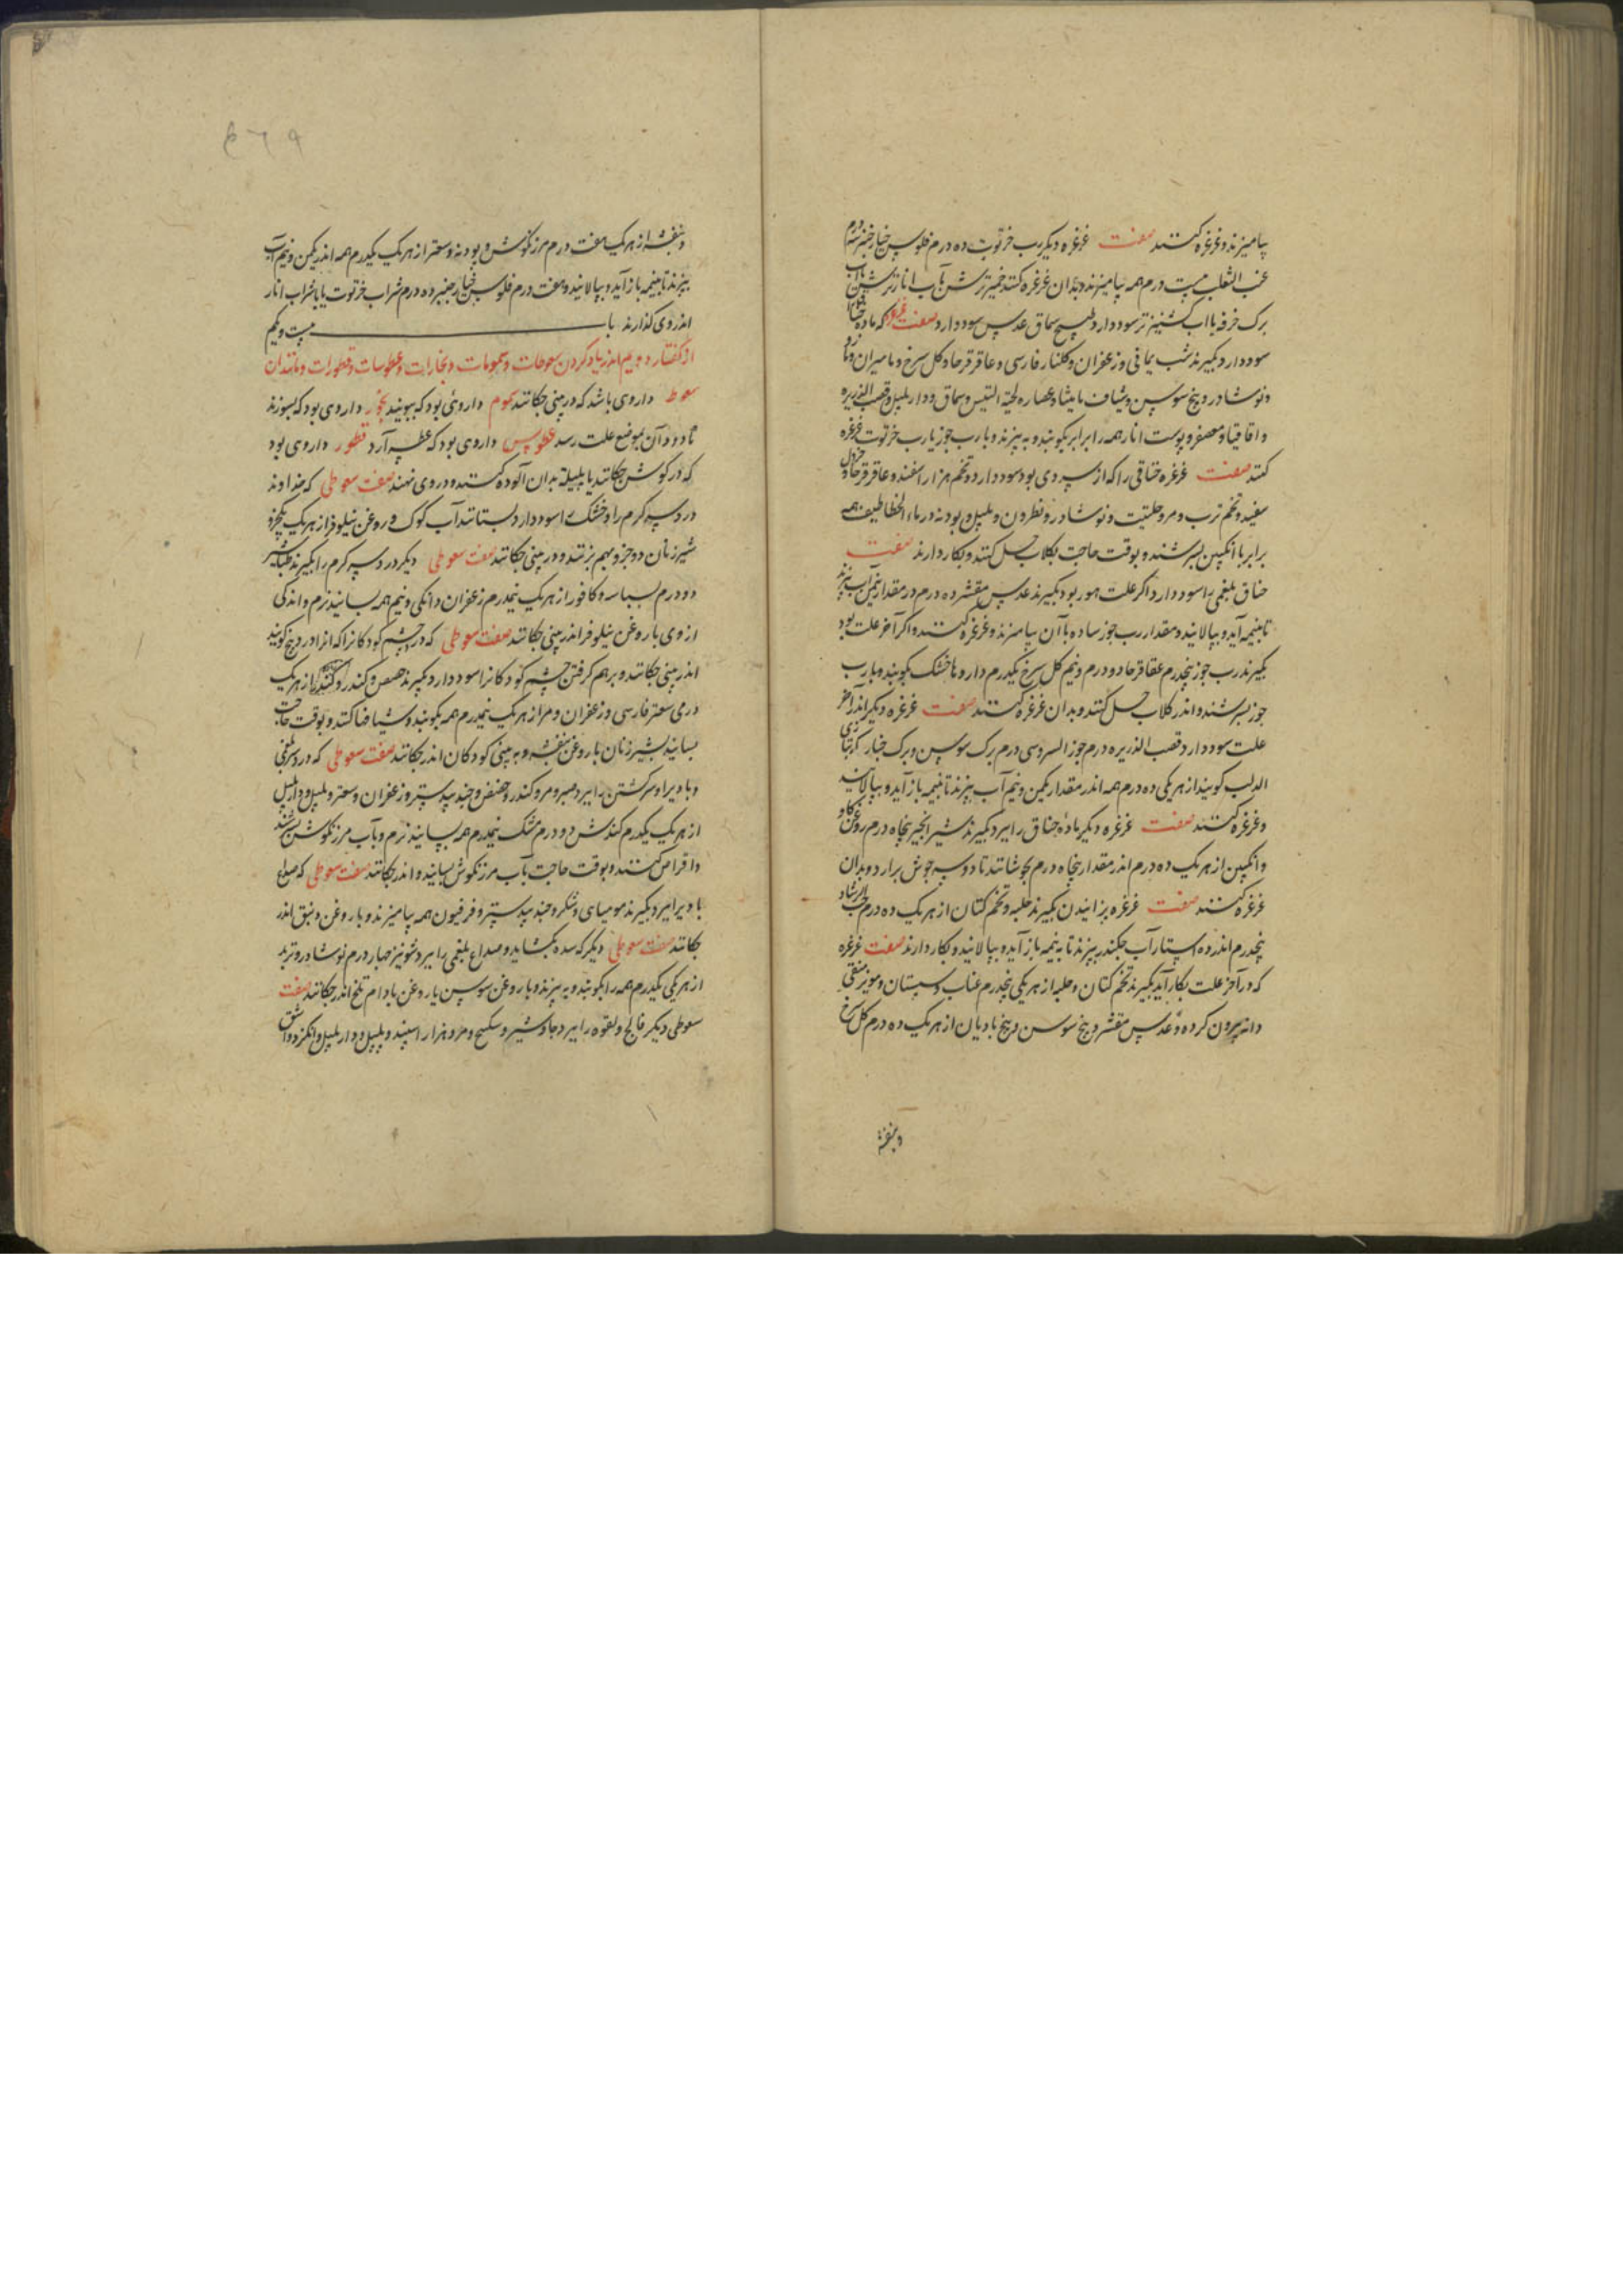 بیامیزند و غرغره کنند صفت غرغره دیگر رب خرتوت ده درم فلوس خیارچنبر سه درم
عنب الثعلب بیست درم همه بیامیزند و بدان غرغره کنند خمیر ترش بآب انار ترش یا بآب
برک خرفه یا اب کشنیز تر سود دارد طبیخ سماق عدس سود دارد صفت غرغره که ماده
سود دارد بکیرند شب یمانی و زعفران و کلنار فارسی و عاقرقرحا و کل سرخ و مامیران
و نوشادر و بیخ سوسن و شیاف مامیثا و عصاره لحیة التیس و سماق و دارپلپل و قصب الذریره
و اقاقیا و معصفر و پوست انار همه را برابر بکوبند و به بیزند و با رب جوز یا رب خرتوت غرغره
کنند صفت غرغره خناقی را که از سردی بود سود دارد تخم هزار اسفند و عاقرقرحا و خردل
سفید و تخم ترب و مر و حلتیت و نوشادر و نطرون و پلپل و پودنه و رماد الخطاطیف همه
برابر با انکبین بسرشند و بوقت حاجت بکلاب حل کنند و بکار دارند صفت
خناق بلغمی را سود دارد اکر علت هنوز بود بکیرند عدس مقشر ده درم در مقدار نیمن آب بپزند
تا بنیمه آید و بپالایند و مقدار رب جوز ساده با آن بیامیزند و غرغره کنند و اکر آخر علت بود
بکیرند رب جوز پنجدرم عقاقرحا دو درم و نیم کل سرخ یکدرم داروها خشک بکوبند و با رب
جوز بسرشند و اندر کلاب حل کنند و بدان غرغره کنند صفت غرغره دیکر اندر آخر
علت سود دارد قصب الذریره درم جوز السرو سی درم برک سوسن و برک خیار که بتازی
الدلب کویند از هر یکی ده درم همه اندر مقدار یکمن و نیم آب بپزند تا بنیمه باز آید و بپالایند
و غرغره کنند صفت غرغره دیکر ماده خناق را ببرد بکیرند شیر انجیر پنجاه درم روغن کاو
و انکبین از هر یک ده درم اندر مقدار پنجاه درم بجوشانند تا دو سه جوش برارد و بدان
غرغره کنند صفت غرغره پزانیدن بکیرند حلبه و تخم کتان از هر یک ده درم حب الرشاد
پنجدرم اندر ده استار آب چکندر بپزند تا به نیمه باز آید و بپالایند و بکار دارند صفت غرغره
که در آخر علت بکار آید بکیرند تخم کتان و حلبه از هر یکی پنجدرم عناب و سبستان و مویز منقی
دانه بیرون کرده و عدس مقشر و بیخ سوسن و بیخ بادیان از هر یک ده درم کل سرخ
و بنفشه
٤٦٩
و بنفشه از هر یک هفت درم مرزنکوش و پودنه و سعتر از هر یک یکدرم همه اندر یکمن و نیم آب
بپزند تا بنیمه باز آید و بپالایند و هفت درم فلوس خیارچنبر ده درم شراب خرتوت یا با شراب انار
اندر وی کذارند باب بیست و یکم
از کفتار دویم اندر یاد کردن سعوطات و شمومات و بخارات و عطوسات و قطورات و مانند آن
سعوط داروی باشد که در بینی چکانند شموم داروئی بود که ببویند بخور داروی بود که بسوزند
تا دود آن بموضع علت رسد عطوس داروی بود که عطسه آرد قطور داروی بود
که در کوش چکانند یا پلیته بدان آلوده کنند و در وی نهند صفت سعوطی که خداوند
درد سر کرم را و خشک را سود دارد بستانند آب کوک و روغن نیلوفر از هر یک یکجزو
شیر زنان دو جزو بهم بزنند و در بینی چکانند صفت سعوطی دیکر درد سر کرم را بکیرند طباشیر
دو درم بسباسه و کافور از هر یک نیمدرم زعفران دانکی و نیم همه بسایند نرم و اندکی
از وی با روغن نیلوفر اندر بینی چکانند صفت سعوطی که درد چشم کودکانرا که انرا دربیخ کویند
اندر بینی چکانند و برهم کرفتن چشم کودکانرا سود دارد بکیرند حضض و کندر و از هر یک
درمی سعتر فارسی و زعفران و مر از هر یک نیمدرم همه بکوبند و شیافها کنند و بوقت حاجت
بسایند بشیر زنان با روغن بنفشه و به بینی کودکان اندر چکانند صفت سعوطی که درد سر بلغمی
و باد را و سر کشتن را ببرد صبر و مر و کندر و حضض و جند بیدستر و زعفران و سعتر و پلپل و دارپلپل
از هر یک یکدرم کندش دو درم مشک نیمدرم همه بسایند نرم و بآب مرزنکوش بسرشند
و اقراص کنند و بوقت حاجت بآب مرزنکوش بسایند و اندر چکانند صفت سعوطی که صداع
بادی را ببرد بکیرند مومیای و شکر و جند بیدستر و فرفیون همه بیامیزند و با روغن زنبق اندر
چکانند صفت سعوطی دیکر که سده بکشاید و صداع بلغمی را ببرد شونیز چهار درم نوشادر و تربد
از هر یکی یکدرم همه را بکوبند و به بیزند و با روغن سوسن یا روغن بادام تلخ اندر چکانند صفت
سعوطی دیکر فالج و لقوه را ببرد جاوشیر و سکبینج و مر و هزار اسپند و پلپل و دارپلپل و انکزد و اشق